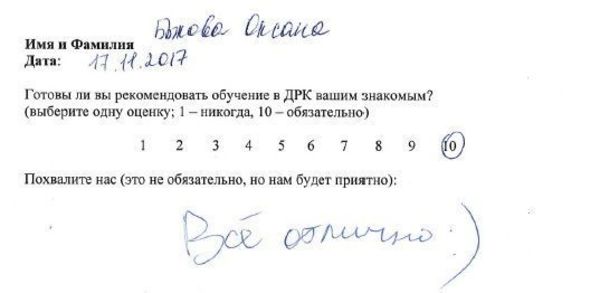 Имя и Фамилия Быкова Оксана
Дата: 17.11.2017
Готовы ли вы рекомендовать обучение в ДРК вашим знакомым?
(выберите одну оценку; 1 – никогда, 10 – обязательно)
1 2 3 4 5 6 7 8 9 10
Похвалите нас (это не обязательно, но нам будет приятно):
Всё отлично :)